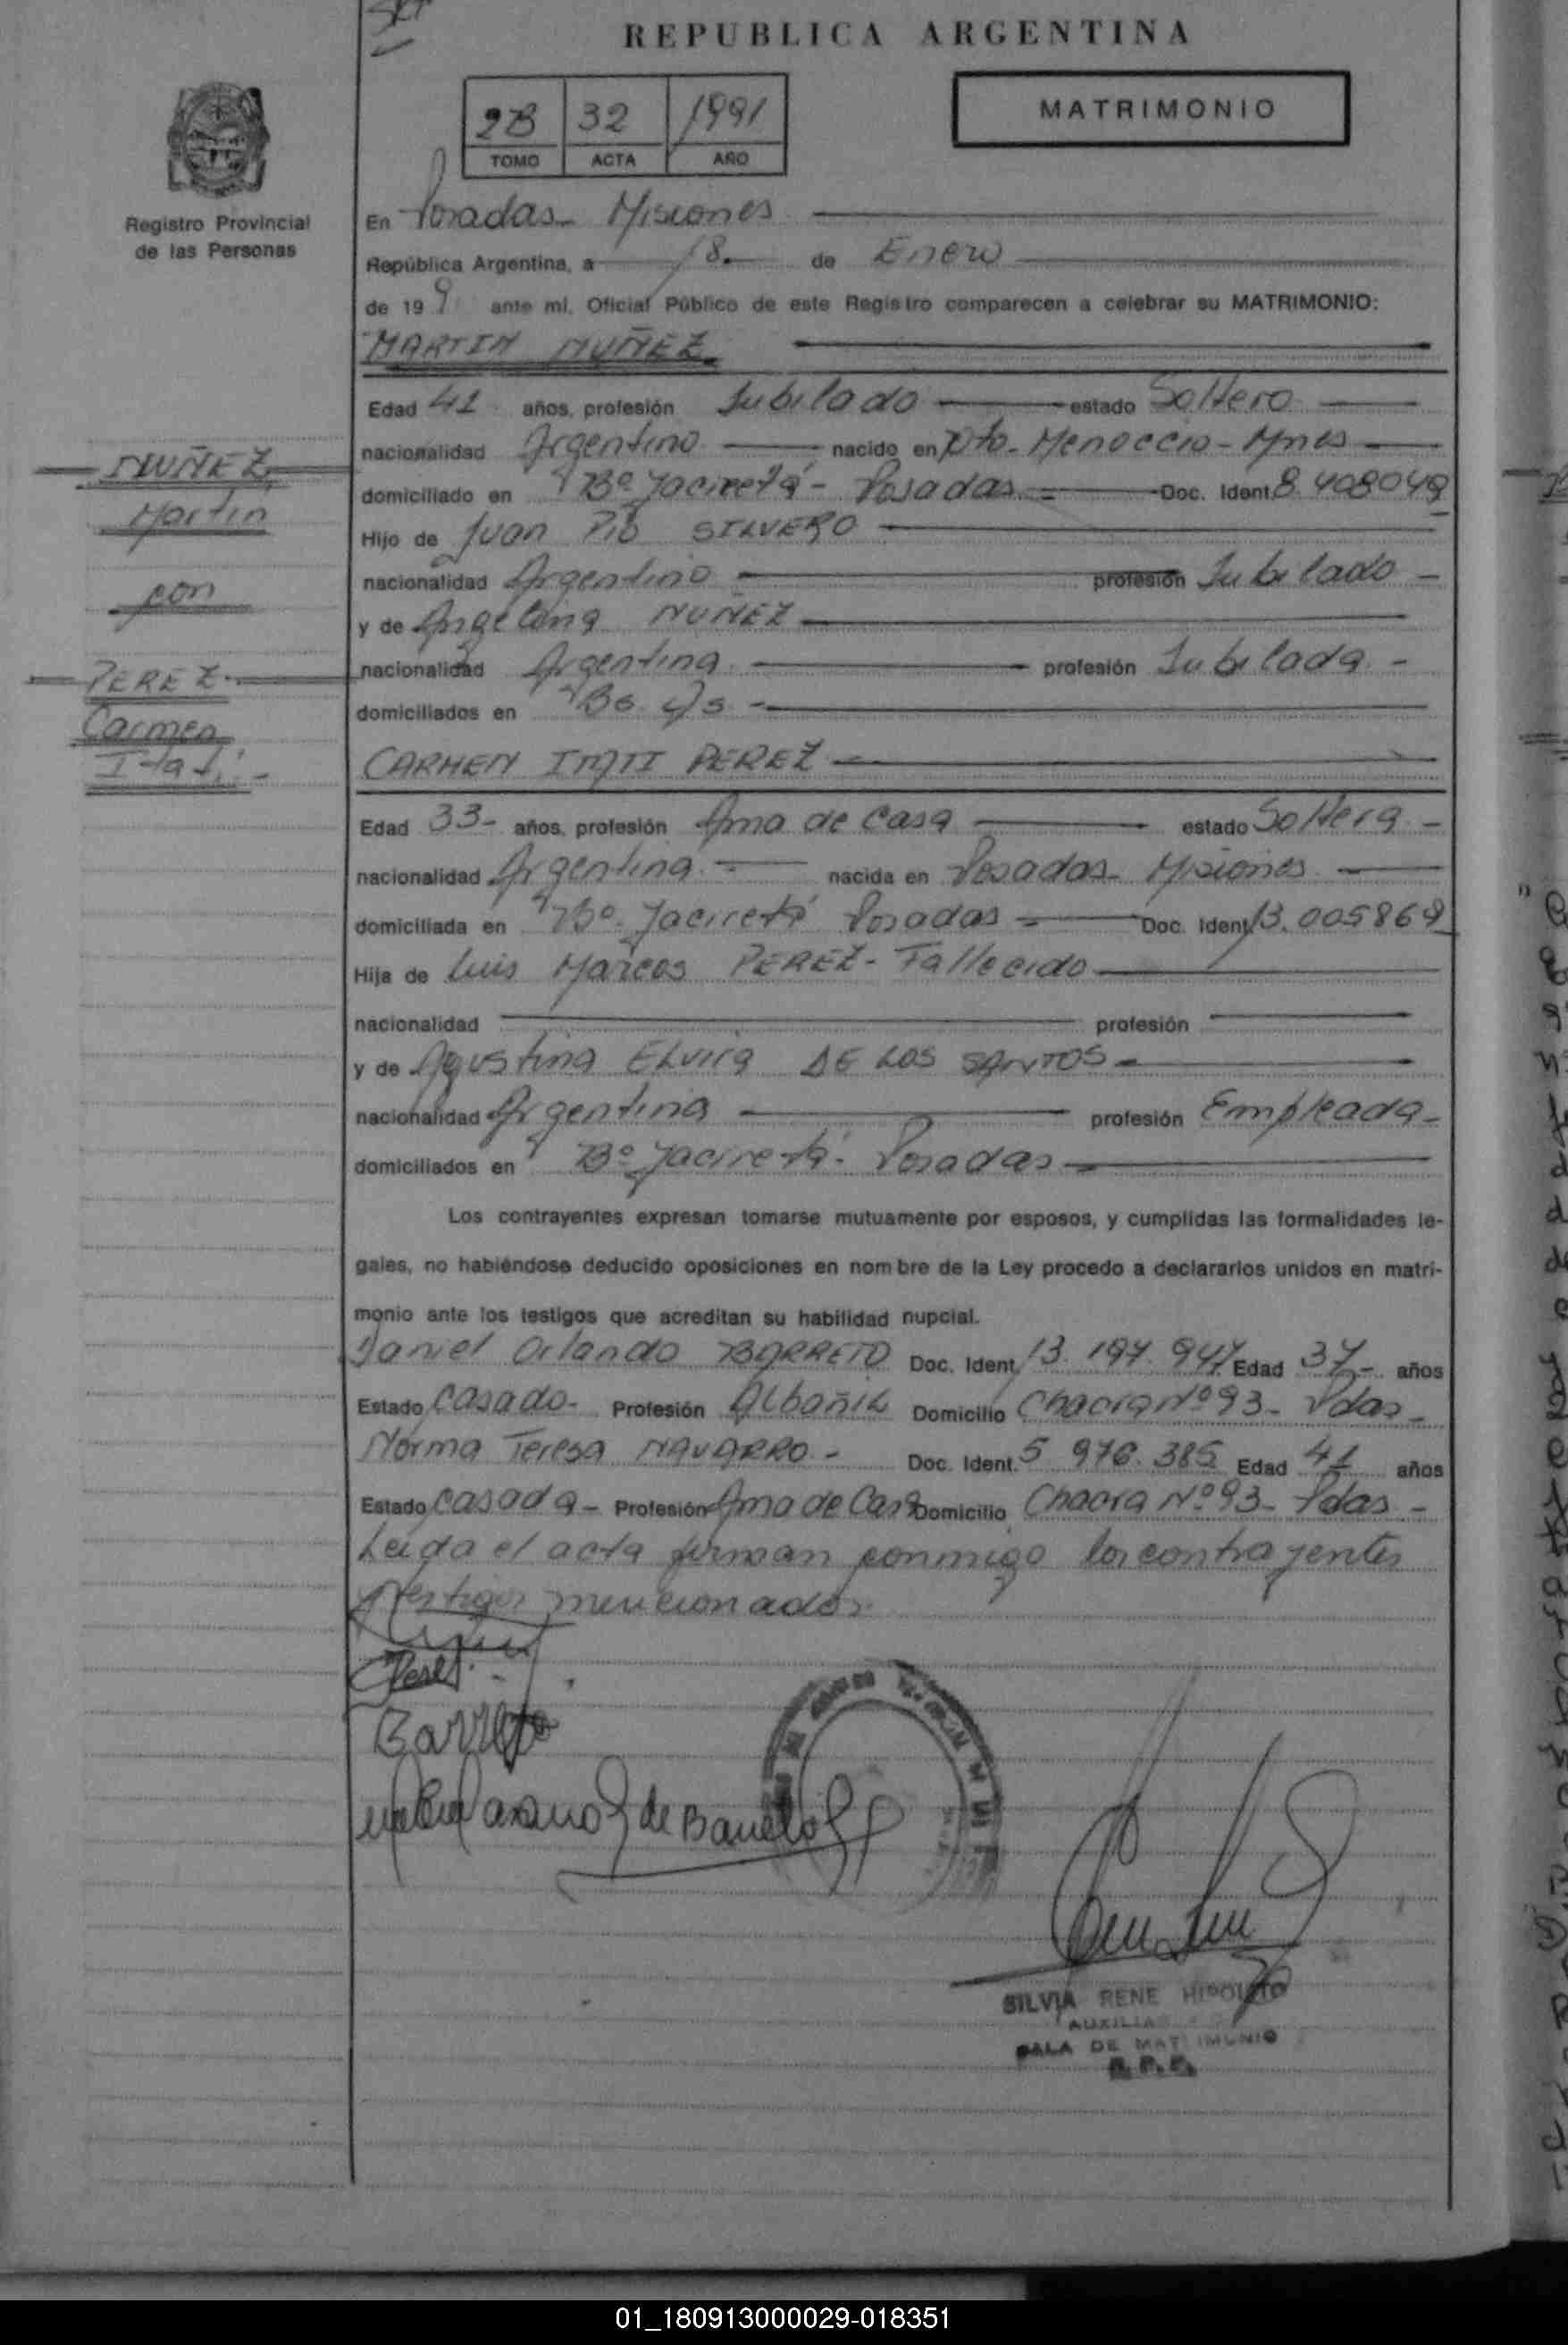 REPUBLICA ARGENTINA
2B 32 1991
TOMO ACTA AÑO
MATRIMONIO
Registro Provincial
de las Personas
En Posadas - Misiones
República Argentina, a 18. de Enero
de 19 9 ante mí, Oficial Público de este Registro comparecen a celebrar su MATRIMONIO:
MARTIN NUÑEZ
Edad 41 años, profesión Jubilado estado Soltero
nacionalidad Argentino nacido en Pto. Menoccio - Mnes
domiciliado en Bº Jacireta - Posadas Doc. Ident 8.408049
Hijo de Juan Pío SILVERO
nacionalidad Argentino profesión Jubilado -
y de Angelina NUÑEZ
nacionalidad Argentina profesión Jubilada -
domiciliados en Bs. As -
NUÑEZ
Martin
con
PEREZ
Carmen
Itatí
CARMEN ITATI PEREZ
Edad 33- años, profesión Ama de Casa estado Soltera -
nacionalidad Argentina nacida en Posadas - Misiones
domiciliada en Bº Jaciretá Posadas Doc. Ident 13.005869
Hija de Luis Marcos PEREZ - Fallecido
nacionalidad profesión
y de Agustina ELvira DE LOS SANTOS
nacionalidad Argentina profesión Empleada -
domiciliados en Bº Jaciretá - Posadas
Los contrayentes expresan tomarse mutuamente por esposos, y cumplidas las formalidades le-
gales, no habiéndose deducido oposiciones en nombre de la Ley procedo a declararlos unidos en matri-
monio ante los testigos que acreditan su habilidad nupcial.
Daniel Orlando BARRETO Doc. Ident. 13.197.947 Edad 37- años
Estado Casado - Profesión Albañil Domicilio Chacra Nº 93 - Pdas -
Norma Teresa NAVARRO - Doc. Ident. 5 976.385 Edad 41 años
Estado Casada - Profesión Ama de Casa Domicilio Chacra Nº 93 - Pdas -
Leída el acta firman conmigo los contrayentes
y testigos mencionados.
CPerez
Barreto
de Barreto
SILVIA RENE HIPOLITO
AUXILIAR
SALA DE MATRIMONIO
R. P. P.
01_180913000029-018351